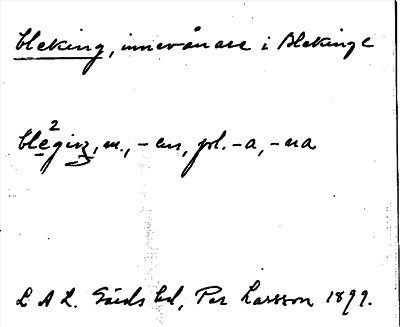 bleking, innevånare i Blekinge
ble²giŋ, m., -en, pl. -a, -na
L A L. Gärds hd, Per Larsson 1899.